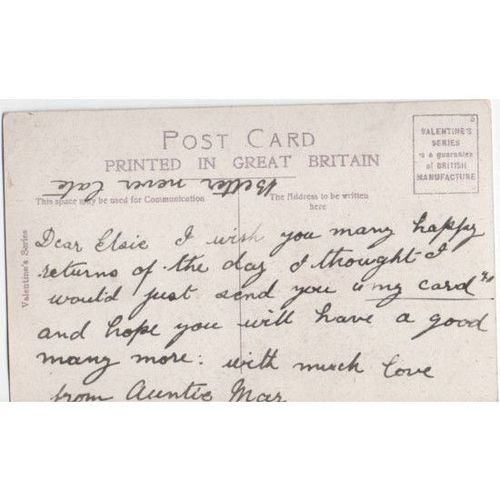 POST CARD
PRINTED IN GREAT BRITAIN
VALENTINE'S
SERIES
is a guarantee
of BRITISH
MANUFACTURE
Better never late
This space may be used for Communication
The Address to be written
here
Valentine's Series
Dear Elsie I wish you many happy
returns of the day I thought I
would just send you my card
and hope you will have a good
many more: with much love
from Auntie Mar